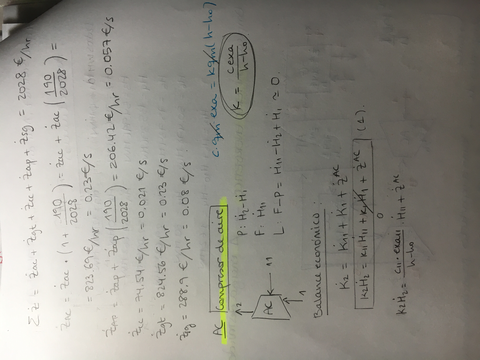 Σ ż = żac + żgt + żcc + żap + żsg = 2028 €/hr
żac = żac · (1 + 190/2028) = żac + żac (190/2028) =
= 823,69 €/hr = 0,23 €/s
żap = żap + żap (190/2028) = 206,42 €/hr = 0.057 €/s
żcc = 74,54 €/hr = 0,021 €/s
żgt = 824,56 €/hr = 0.23 €/s
żsg = 288,9 €/hr = 0.08 €/s
AC Compresor de aire
c exa = k (h-ho)
K = c exa / h-ho
2
AC
11
1
P: Ḣ2-Ḣ1
F: Ḣ11
L: F-P = H11-H2+H1 ≈ 0.
Balance económico:
K̇2 = K̇11 + K̇1 + Ż^AC
K2H2 = K11H11 + K1H1 + Ż^AC (1)
0
K2H2 = c11·exa11 / h-ho H11 + Ż^AC